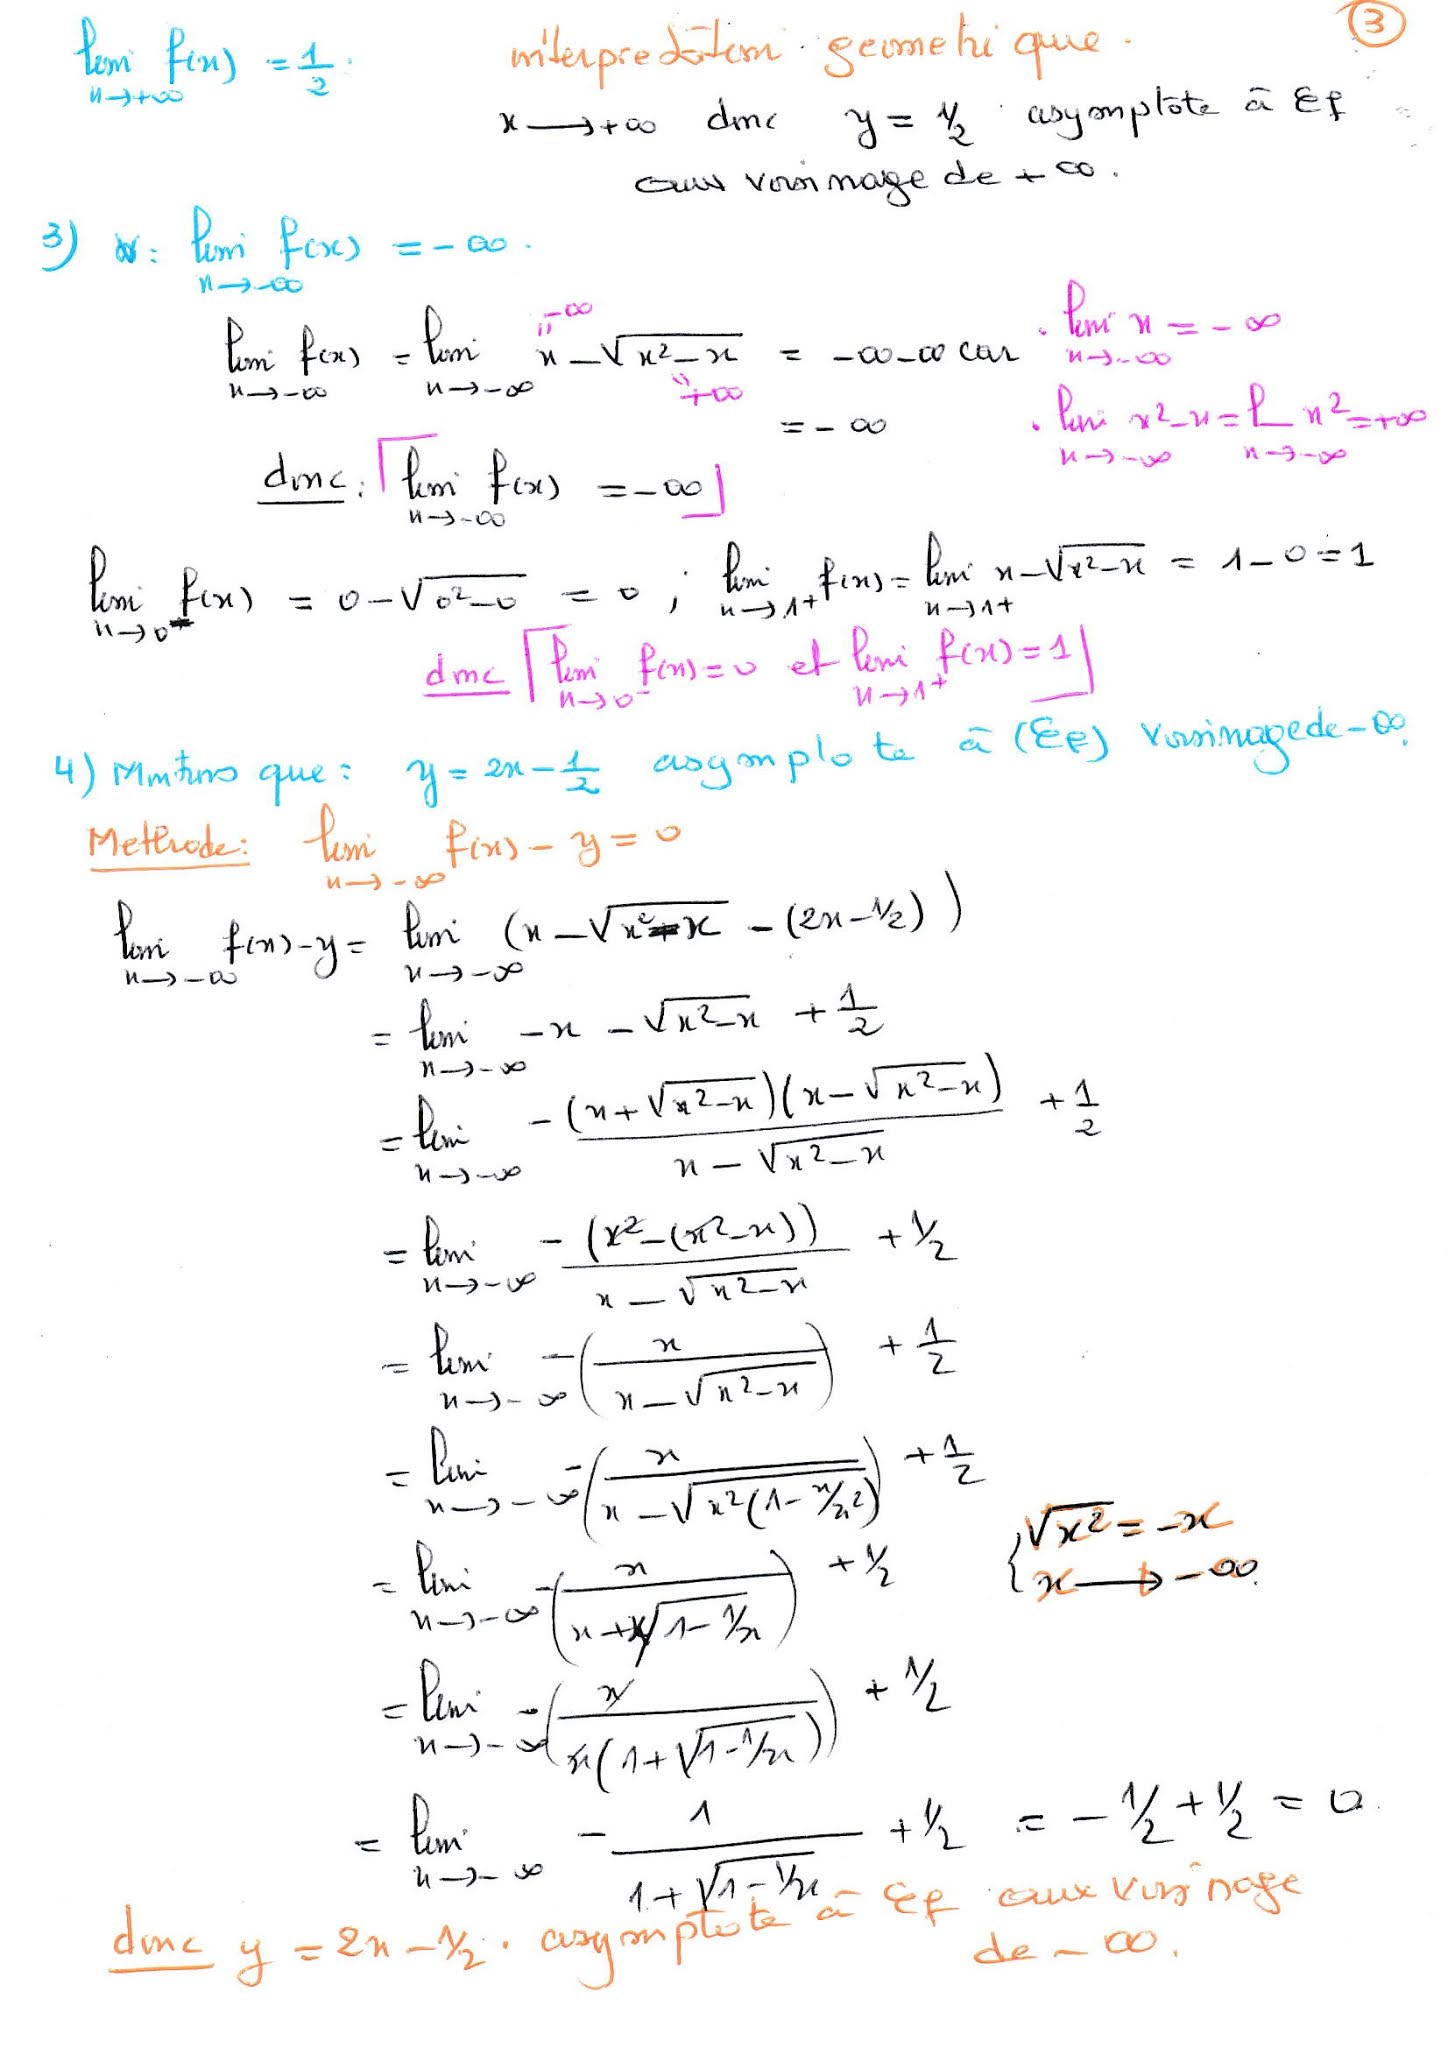 ③
lim f(x) = 1/2 . interpretation geometrique .
x→+∞
x ⟶ +∞ donc y = 1/2 asymptote à Cf
aux voisinage de +∞ .
3) : lim f(x) = -∞ .
x→-∞
lim f(x) = lim x - √(x²-x) = -∞-∞ car . lim x = -∞
x→-∞ x→-∞ x→-∞
-∞ +∞
= -∞ . lim x²-x = L x² = +∞
x→-∞ x→-∞
donc : lim f(x) = -∞
x→-∞
lim f(x) = 0 - √(0²-0) = 0 ; lim f(x) = lim x - √(x²-x) = 1-0 = 1
x→0⁻ x→1+ x→1+
donc lim f(x) = 0 et lim f(x) = 1
x→0⁻ x→1+
4) Montrons que : y = 2x - 1/2 asymptote à (Cf) voisinage de -∞.
Methode : lim f(x) - y = 0
x→-∞
lim f(x) - y = lim (x - √(x²-x) - (2x - 1/2))
x→-∞ x→-∞
= lim -x - √(x²-x) + 1/2
x→-∞
= lim -(x+√(x²-x))(x-√(x²-x)) / (x - √(x²-x)) + 1/2
x→-∞
= lim -(x²-(x²-x)) / (x - √(x²-x)) + 1/2
x→-∞
= lim -(x / (x - √(x²-x))) + 1/2
x→-∞
= lim -(x / (x - √(x²(1 - x/x²)))) + 1/2
x→-∞
{ √x² = -x
x ⟶ -∞.
= lim -(x / (x + x√(1 - 1/x))) + 1/2
x→-∞
= lim -(x / (x(1 + √(1 - 1/x)))) + 1/2
x→-∞
= lim - 1 / (1 + √(1 - 1/x)) + 1/2 = -1/2 + 1/2 = 0
x→-∞
donc y = 2x - 1/2 . asymptote à Cf aux voisinage
de -∞ .